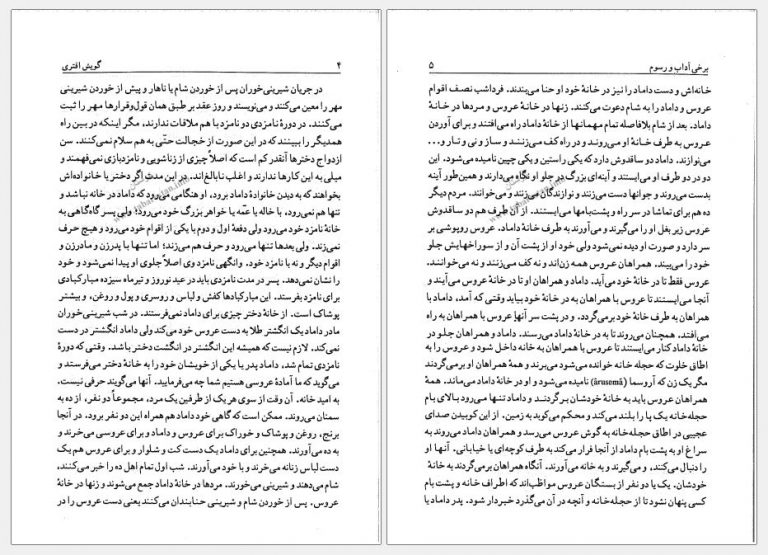 ۴ گویش افتری
در جریان شیرینی‌خوران پس از خوردن شام یا ناهار و پیش از خوردن شیرینی
مهر را معین می‌کنند و می‌نویسند و روز عقد بر طبق همان قول‌وقرارها مهر را ثبت
می‌کنند. در دورهٔ نامزدی دو نامزد با هم ملاقات ندارند، مگر اینکه در بین راه
همدیگر را ببینند که در این صورت از خجالت حتّی به هم سلام نمی‌کنند. سن
ازدواج دخترها آنقدر کم است که اصلاً چیزی از زناشویی و نامزدبازی نمی‌فهمند و
میلی به این کارها ندارند و اغلب نابالغ‌اند. در این مدت اگر دختر یا خانواده‌اش
بخواهند که به دیدن خانوادهٔ داماد برود، او هنگامی می‌رود که داماد در خانه نباشد و
تنها هم نمی‌رود، با خاله یا عمّه یا خواهر بزرگ خود می‌رود؛ ولی پسر گاه‌گاهی به
خانهٔ نامزد خود می‌رود ولی دفعهٔ اول و دوم با یکی از اقوام خود می‌رود و هیچ حرف
نمی‌زند. ولی بعدها تنها می‌رود و حرف هم می‌زند؛ اما تنها با پدرزن و مادرزن و
اقوام دیگر و نه با نامزد خود. وانگهی نامزد وی اصلاً جلوی او پیدا نمی‌شود و خود
را نشان نمی‌دهد. پسر در مدت نامزدی باید در عید نوروز و تیرماه سیزده مبارکبادی
برای نامزد بفرستد. این مبارکبادها کفش و لباس و روسری و پول و روغن، و بیشتر
پوشاک است. از خانهٔ دختر چیزی برای داماد نمی‌فرستند. در شب شیرینی‌خوران
مادر داماد یک انگشتر طلا به دست عروس خود می‌کند ولی داماد انگشتر در دست
نمی‌کند. لازم نیست که همیشه این انگشتر در انگشت دختر باشد. وقتی که دورهٔ
نامزدی تمام شد، داماد پدر یا یکی از خویشان خود را به خانهٔ دختر می‌فرستد و
می‌گوید که ما آمادهٔ عروسی هستیم شما چه می‌فرمایید. آنها می‌گویند حرفی نیست.
به امید خانه. آن وقت از سوی هر یک از طرفین یک مرد، مجموعاً دو نفر، از ده به
سمنان می‌روند. ممکن است که گاهی خود داماد هم همراه این دو نفر برود. در آنجا
برنج، روغن و پوشاک و خوراک برای عروس و داماد و برای عروسی می‌خرند و
به ده می‌آورند. همچنین برای داماد یک دست کت و شلوار و برای عروس هم یک
دست لباس زنانه می‌خرند و با خود می‌آورند. شب اول تمام اهل ده را خبر می‌کنند،
شام می‌دهند و شیرینی می‌خورند. مردها در خانهٔ داماد جمع می‌شوند و زنها در خانهٔ
عروس. پس از خوردن شام و شیرینی حنابندان می‌کنند یعنی دست عروس را در
برخی آداب و رسوم ۵
خانه‌اش و دست داماد را نیز در خانهٔ خود او حنا می‌بندند. فرداشب نصف اقوام
عروس و داماد را به شام دعوت می‌کنند. زنها در خانهٔ عروس و مردها در خانهٔ
داماد. بعد از شام بلافاصله تمام مهمانها از خانهٔ داماد راه می‌افتند و برای آوردن
عروس به طرف خانهٔ او می‌روند و در راه کف می‌زنند و ساز و نی و تار و...
می‌نوازند. داماد دو ساقدوش دارد که یکی راستین و یکی چپین نامیده می‌شود. این
دو در دو طرف او می‌ایستند و آینه‌ای بزرگ در جلو او نگاه می‌دارند و همین‌طور آینه
بدست می‌روند و جوانها دست می‌زنند و نوازندگان می‌زنند و می‌خوانند. مردم دیگر
ده هم برای تماشا در سر راه و پشت‌بامها می‌ایستند. از آن طرف هم دو ساقدوش
عروس زیر بغل او را می‌گیرند و می‌آورند به طرف خانهٔ داماد. عروس روپوشی بر
سر دارد و صورت او دیده نمی‌شود ولی خود او از پشت آن و از سوراخهایش جلو
خود را می‌بیند. همراهان عروس همه زن‌اند و نه کف می‌زنند و نه می‌خوانند.
عروس فقط تا در خانهٔ خود می‌آید. داماد و همراهان او تا در خانهٔ عروس می‌آیند و
آنجا می‌ایستند تا عروس با همراهان به در خانهٔ خود بیاید وقتی که آمد، داماد با
همراهان به طرف خانهٔ خود برمی‌گردد. و در پشت سر آنها عروس با همراهان به راه
می‌افتد. همچنان می‌روند تا به در خانهٔ داماد می‌رسند. داماد و همراهان جلو در
خانهٔ داماد کنار می‌ایستند تا عروس با همراهان به خانه داخل شود و عروس را به
اطاق خلوت که حجله خانه خوانده می‌شود می‌برند و همهٔ همراهان او برمی‌گردند
مگر یک زن که آروسما (ârusemâ) نامیده می‌شود و او در خانهٔ داماد می‌ماند. همهٔ
همراهان عروس باید به خانهٔ خودشان برگردنـد و داماد تنهـا می‌رود بالای بام
حجله‌خانه یک پا را بلند می‌کند و محکم می‌کوبد به زمین. از این کوبیدن صدای
عجیبی در اطاق حجله‌خانه به گوش عروس می‌رسد و همراهان داماد می‌روند به
سراغ او به پشت بام داماد از آنجا فرار می‌کند به طرف کوچه‌ای یا خیابانی. آنها او
را دنبال می‌کنند، و می‌گیرند و به خانه می‌آورند. آنگاه همراهان برمی‌گردند به خانهٔ
خودشان. یک یا دو نفر از بستگان عروس مواظب‌اند که اطراف خانه و پشت بام
کسی پنهان نشود تا از حجله‌خانه و آنچه در آن می‌گذرد خبردار شود. پدر داماد یا